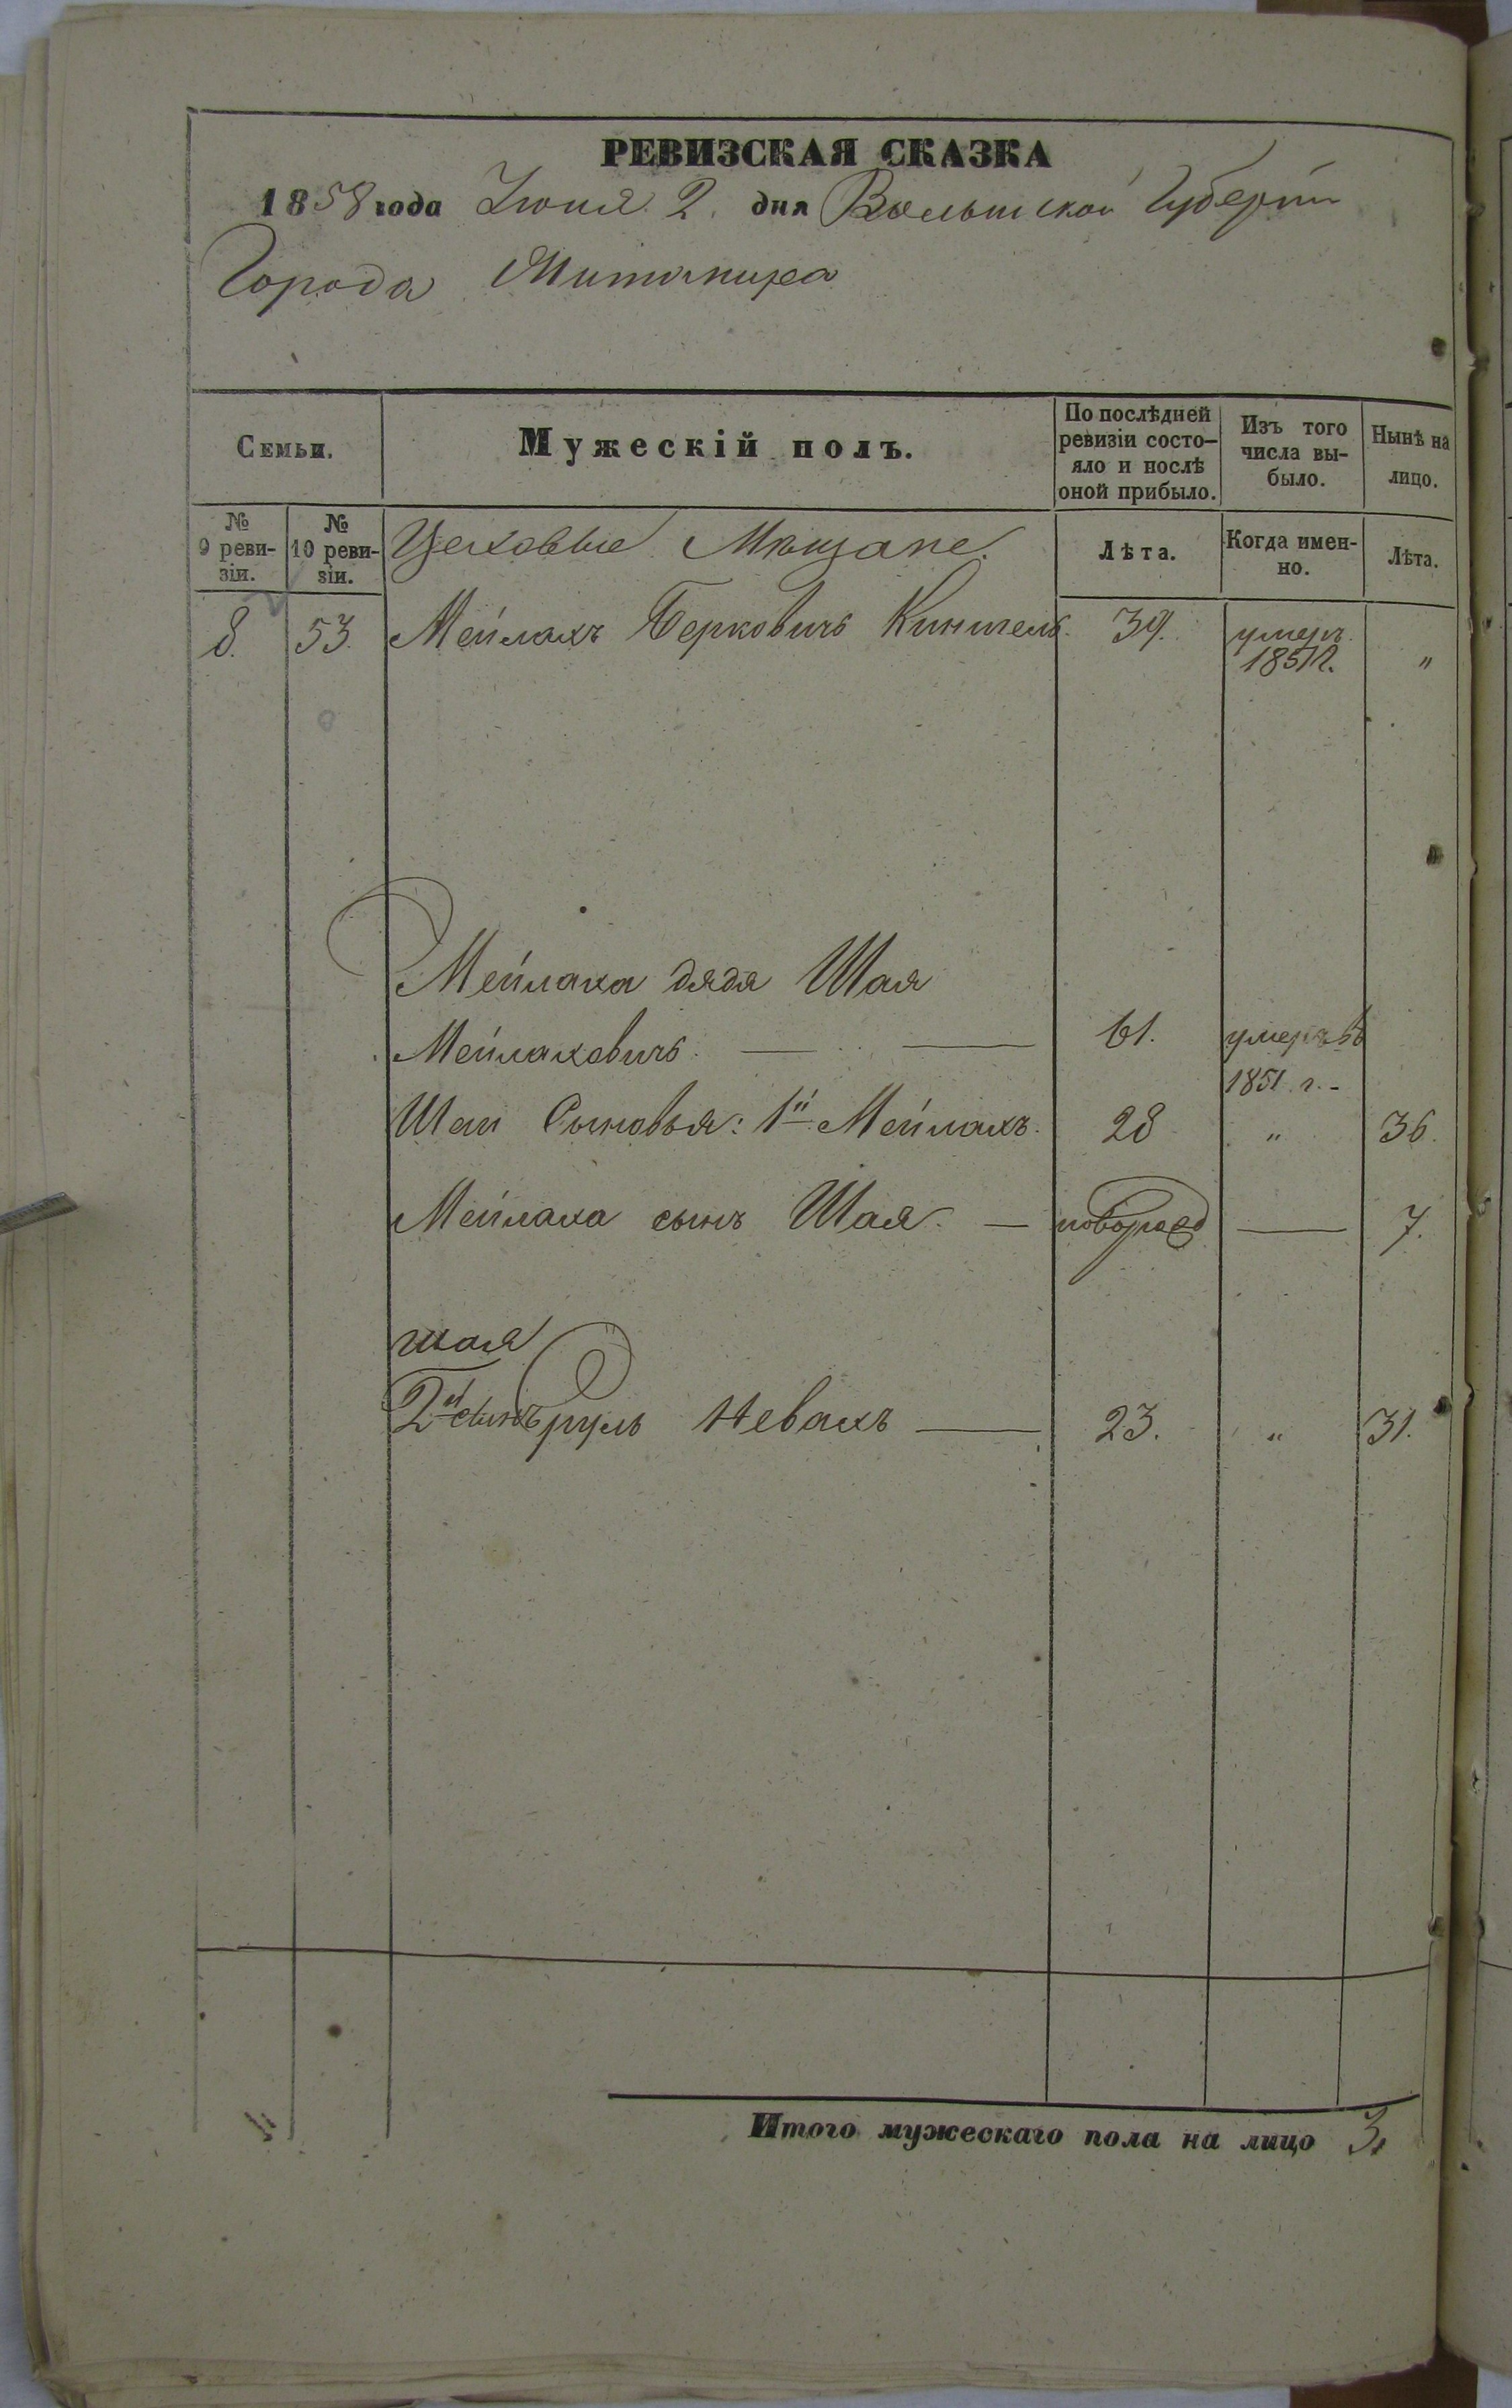 РЕВИЗСКАЯ СКАЗКА
1858 года Іюня 2. дня Волынской Губерніи
Города Житомира
Семьи.
Мужескій полъ.
По послѣдней ревизіи состо-
яло и послѣ
оной прибыло.
Изъ того
числа вы-
было.
Нынѣ на
лицо.
№
9 реви-
зіи.
№
10 реви-
зіи.
Цеховые Мѣщане.
Лѣта.
Когда имен-
но.
Лѣта.
8. 53. Мейлахъ Берковичъ 39. умеръ
1851 г. "
Мейлаха дядя Шая
Мейлаховичъ — — 61. умеръ въ
1851 г. -
Шаи Сыновья: 1й Мейлахъ. 28 " 36.
Мейлаха сынъ Шая. — новорожд — 7.
Шая
2й сынъ Сруль Невахъ — 23. " 31.
Итого мужескаго пола на лицо 3.